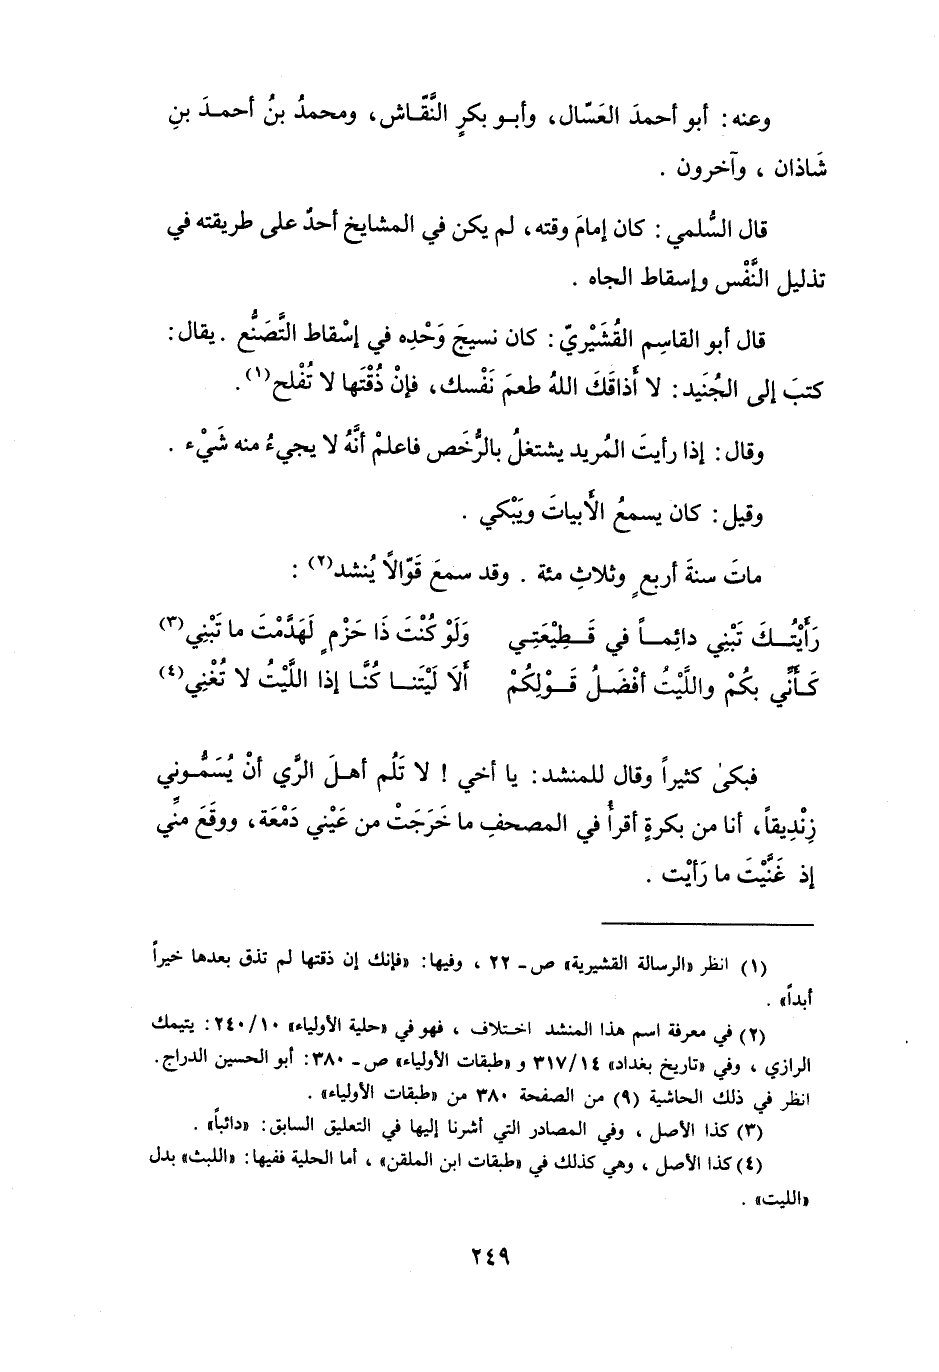 وعنه : أبو أحمدَ العَسّال، وأبـو بكرٍ النَّقّـاش، ومحمدُ بنُ أحمـدَ بنِ
شَاذان ، وآخرون .
قال السُّلمي : كان إمامَ وقته، لم يكن في المشايخ أحدٌ على طريقته في
تذليل النَّفْس وإسقاط الجاه .
قال أبو القاسِم القُشَيْريّ : كان نسيجَ وَحْدِه في إسْقاط التَّصَنُّع . يقال :
كتبَ إلى الجُنَيد : لا أَذاقَكَ اللهُ طعمَ نَفْسك، فإنْ ذُقْتَها لا تُفْلح(١) .
وقال : إذا رأيتَ المُريد يشتغلُ بالرُّخَص فاعلمْ أنَّهُ لا يجيءُ منه شَيْء .
وقيل : كان يسمعُ الأَبياتَ ويَبْكي .
ماتَ سنةَ أربعٍ وثلاثِ مئة . وقد سمعَ قَوّالًا يُنشد(٢) :
رَأَيْتُــكَ تَبْنِي دائِمــاً في قَـطِيْعَتِـي ولَوْ كُنْتَ ذَا حَزْمٍ لَهَدَّمْتَ ما تَبْنِي(٣)
كَـأَنِّي بِكُمْ واللَّيْتُ أفْضَـلُ قَـوْلِكُمْ أَلَا لَيْتَنــا كُنَّــا إذا اللَّيْتُ لا تُغْنِي(٤)
فبكىٰ كثيراً وقال للمنشد : يا أخي ! لا تَلُم أهـلَ الرَّي أنْ يُسَمُّـوني
زِنْدِيقاً، أنا من بكرةٍ أقرأُ في المصحفِ ما خَرَجَتْ من عَيْني دَمْعَة، ووقَعَ منِّي
إذ غَنَّيْتَ ما رَأَيْت .
(١) انظر «الرسالة القشيرية» ص ـ ٢٢ ، وفيها : «فإنك إن ذقتها لم تذق بعدها خيراً
أبداً» .
(٢) في معرفة اسم هذا المنشد اختلاف ، فهو في «حلية الأولياء» ٢٤٠/١٠ : يتيمك
الرازي ، وفي «تاريخ بغداد» ٣١٧/١٤ و «طبقات الأولياء» ص ـ ٣٨٠ : أبو الحسين الدراج .
انظر في ذلك الحاشية (٩) من الصفحة ٣٨٠ من «طبقات الأولياء» .
(٣) كذا الأصل ، وفي المصادر التي أشرنا إليها في التعليق السابق : «دائباً» .
(٤) كذا الأصل ، وهي كذلك في «طبقات ابن الملقن» ، أما الحلية ففيها : «اللبث» بدل
«الليت» .
٢٤٩